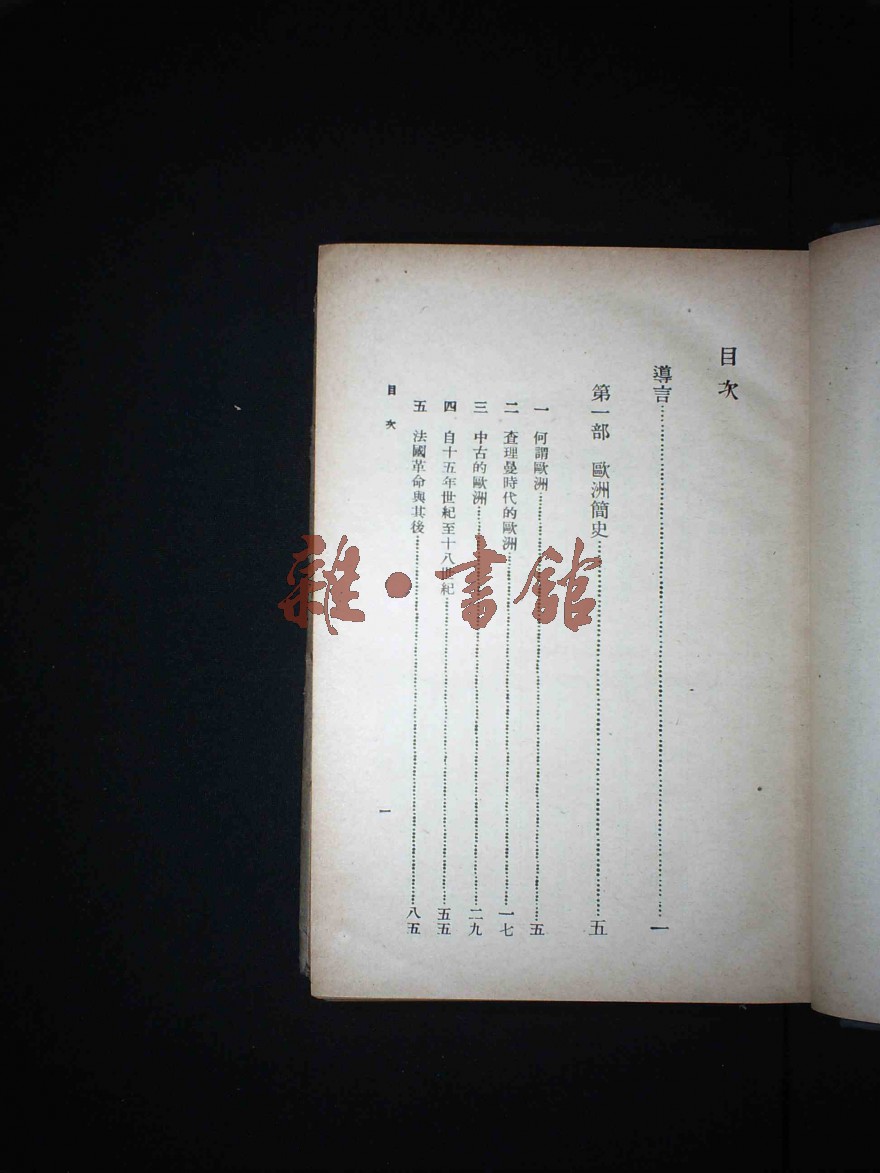 目次
導言……一
第一部 歐洲簡史……五
一 何謂歐洲……五
二 查理曼時代的歐洲……一七
三 中古的歐洲……二九
四 自十五年世紀至十八世紀……五五
五 法國革命與其後……八五
目次
一
雜·書館